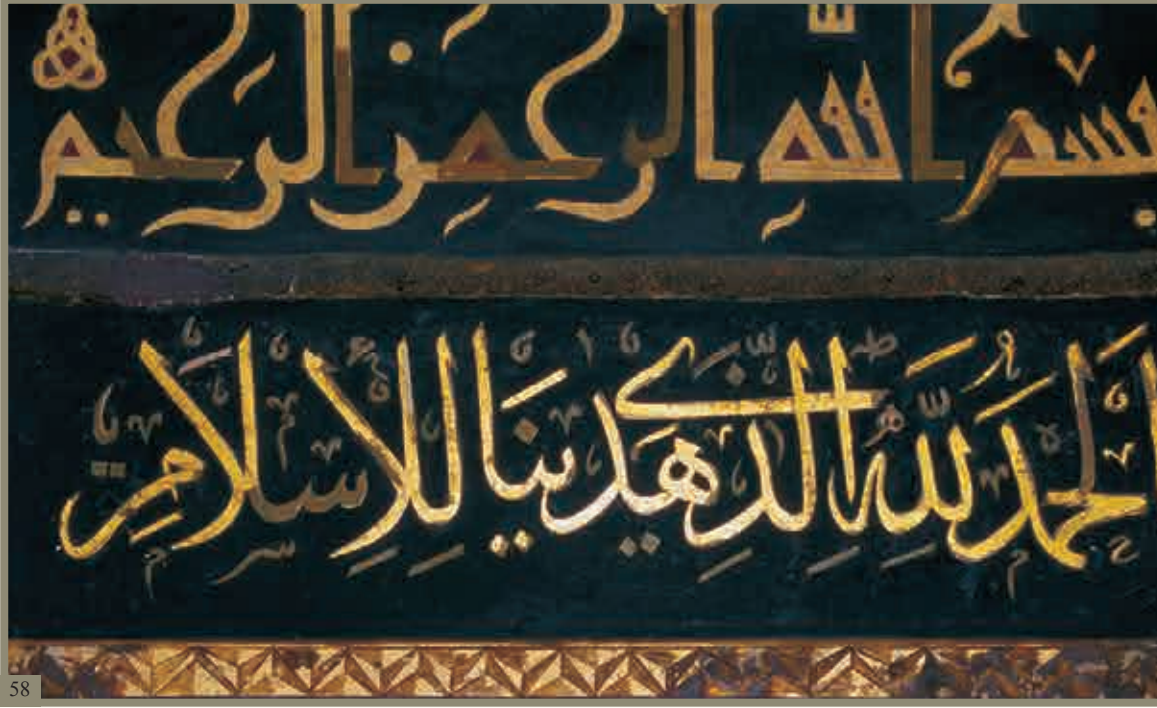 بسم الله الرحمن الرحيم
اَلْحَمْدُ لِلّٰهِ الَّذِي هَدَينَا لِلْاِسْلَامِ
58